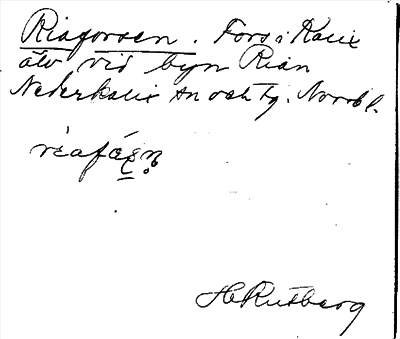 Riaforsen. Fors i Kalix
älv vid byn Rian
Nederkalix sn och tg. Norrb l.
H Rutberg